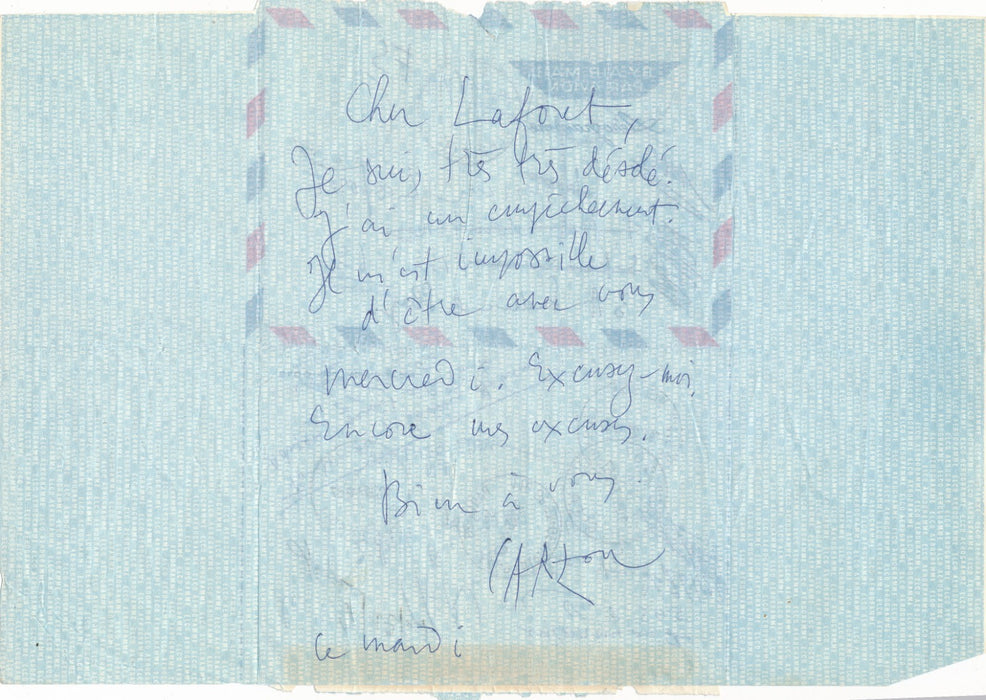 Cher Laforet,
Je suis très très désolé.
J'ai un empêchement.
Il m'est impossible
d'être avec vous
mercredi. Excusez-moi,
Encore mes excuses.
Bien à vous.
CARZOU
ce mardi